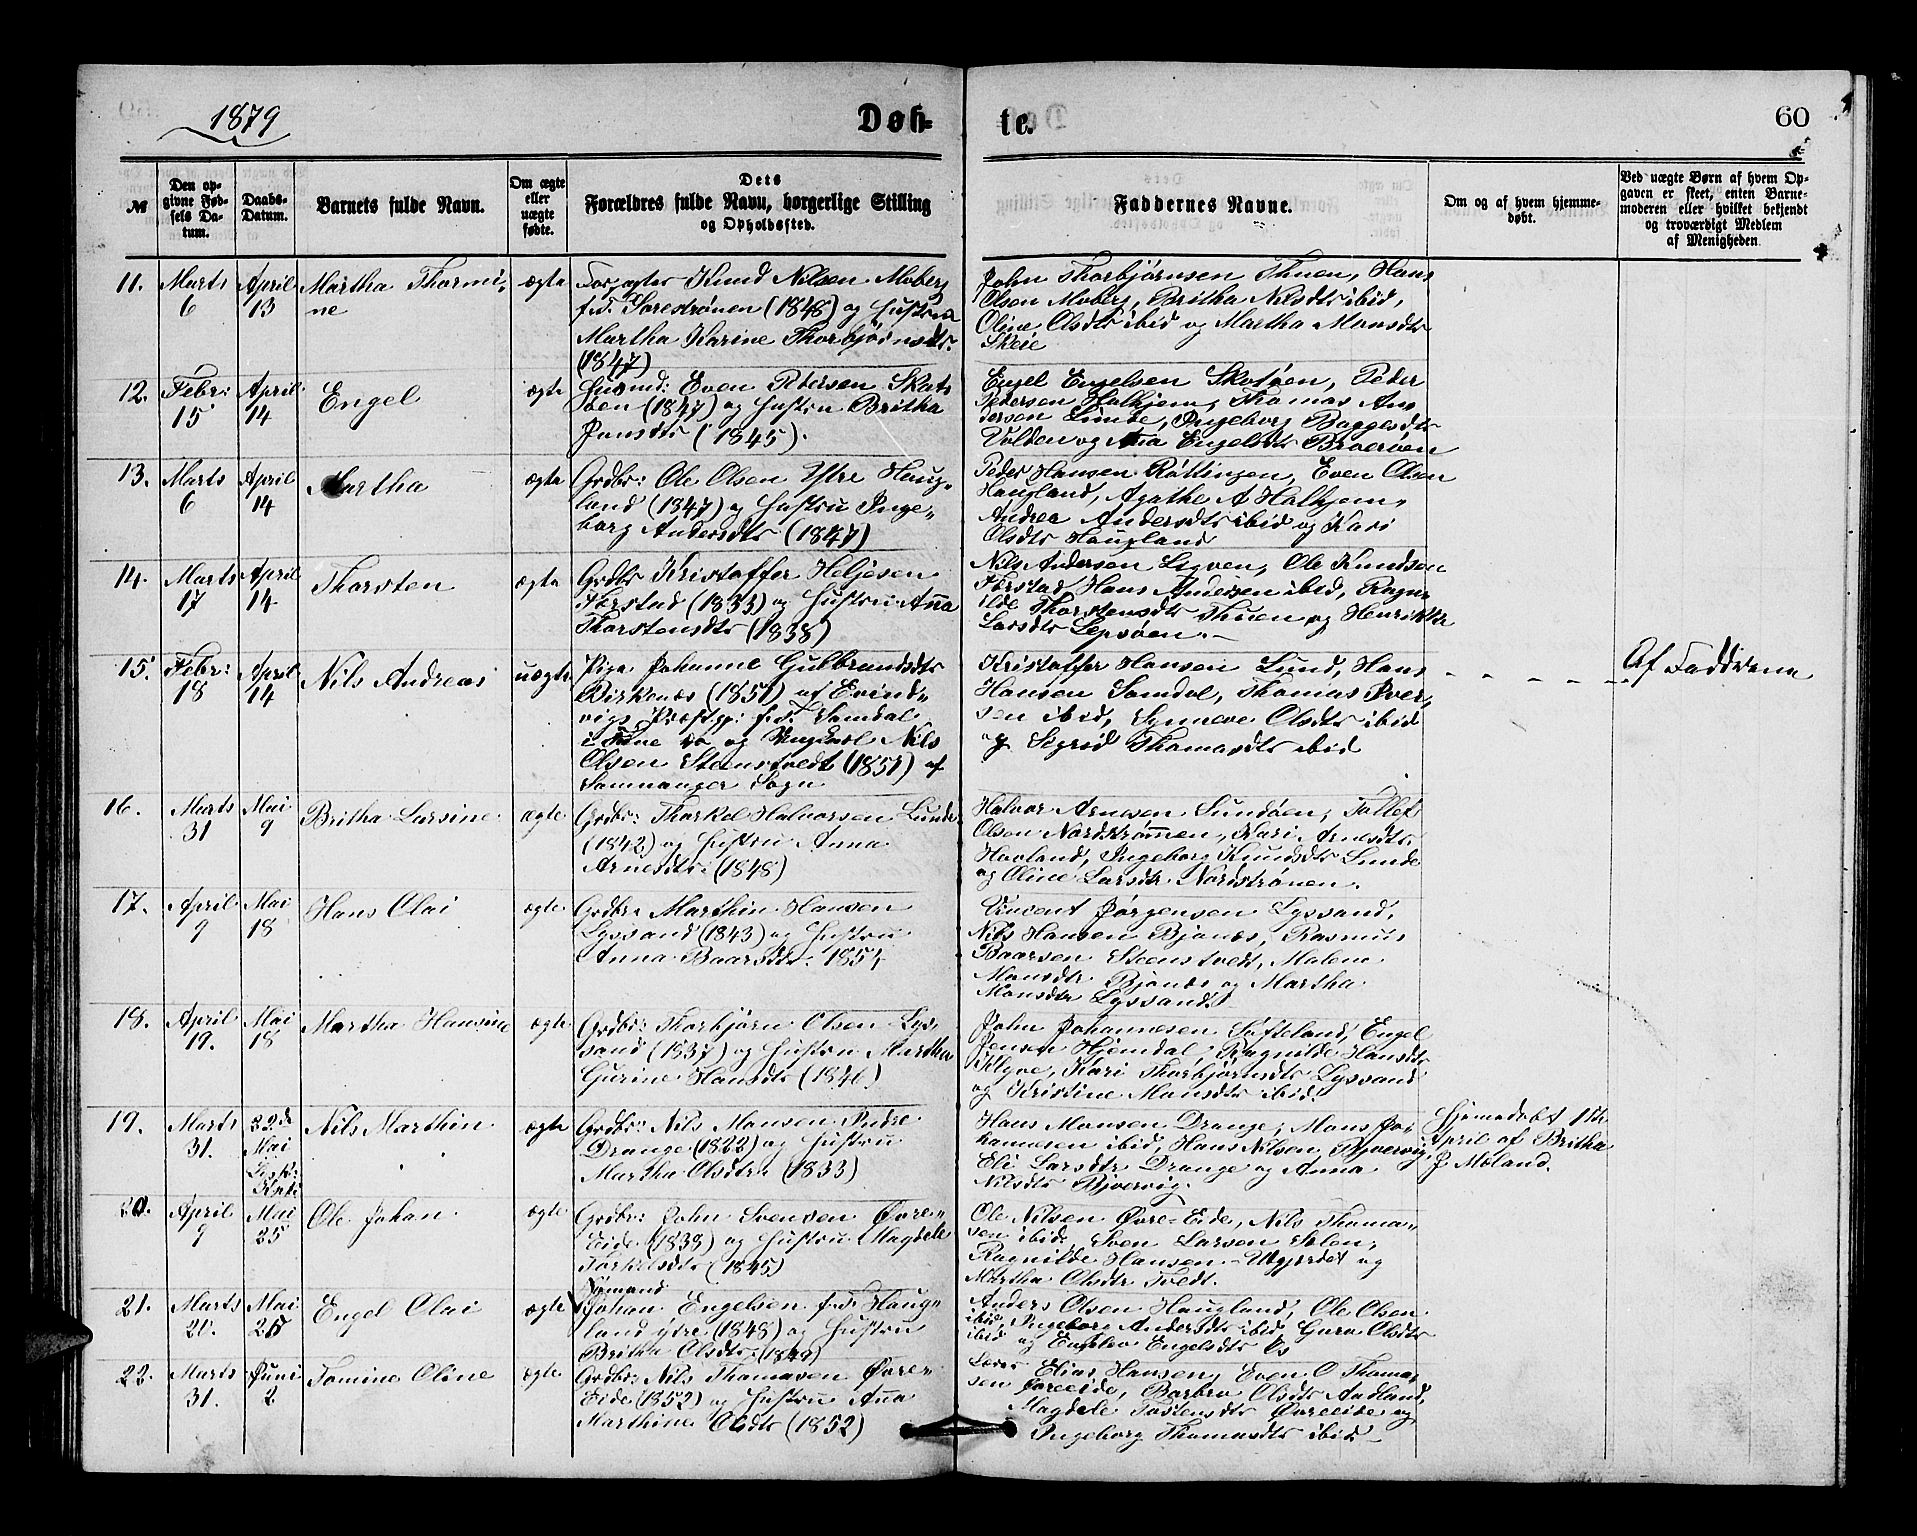 1879
Døb-
te.
60
№
Den op-
givne Fød-
sels Da-
tum.
Daabs-
Datum.
Barnets fulde Navn.
Om ægte
eller
uægte
fødte.
Dets
Forældres fulde Navn, borgerlige Stilling
og Opholdssted.
Faddernes Navne.
Om og af hvem hjemme-
døbt.
Ved uægte Børn af hvem Op-
gaven er skeet, enten Barne-
moderen eller hvilket bekjendt
og troværdigt Medlem
af Menigheden.
11.
Marts
6
April
13
Martha Thormi-
ne
ægte
Forpagter Knud Nilsen Moberg
f.T. Sørestrønen (1848) og Hustru
Martha Karine Thorbjørnsdtr.
(1847)
John Thorbjørnsen Thuen, Hans
Olsen Moberg, Britha Nilsdtr ibid,
Oline Olsdtr ibid og Martha Monsdtr
Skeie
12.
Febr:
15
April
14
Engel
ægte
Husmd: Even Petersen Skots
øen (1847) og Hustru Britha
Jonsdtr (1845).
Engel Engelsen Skotøen, Peder
Pedersen Halhjem, Thomas An
dersen Lunde, Ingeborg Baggesdtr
Volden og Ana Engelsdtr Broerøen
13.
Marts
6
April
14
Martha
ægte
Grdbr: Ole Olsen Ytre Haug-
land (1847) og Hustru Inge-
borg Andersdtr (1847)
Peder Hansen Røttingen, Even Olsen
Haugland, Agathe A Halhjem,
Andrea Andersdtr ibid og Kari
Olsdtr Haugland
14.
Marts
17
April
14
Thorsten
ægte
Grdbr Kristoffer Heljesen
Færstad (1833) og Hustru Anna
Thorstensdtr (1838)
Nils Andersen Lyven, Ole Knudsen
Færstad, Hans Andersen ibid, Ragn-
ilde Thorstensdtr Thuen og Henrikke
Larsdtr Lepsøen.
15.
Febr:
18
April
14
Nils Andreas
uægte
Pige Johanne Gulbrandsdtr
Birkenæs (1851) af Evind-
vigs Præstgj: f.T. Samdal
i Fane og Ungkarl Nils
Olsen Steenstvedt (1851) af
Samnanger Sogn
Kristoffer Hansen Lund, Hans
Hansen Samdal, Thomas Iver-
sen ibid, Synneve Olsdtr ibid
og Sigrid Thomasdtr ibid
Af Fadderne
16.
Marts
31
Mai
9
Britha Larsine
ægte
Grdbr: Thorkel Halvorsen Lunde
(1842) og Hustru Anna
Arnesdtr. (1848)
Halvor Arnesen Sundøen, Tollef
Olsen Nordstrømen, Kari Arnesdtr.
Havland, Ingeborg Knudsdtr Lunde
og Oline Larsdtr Nordstrønen.
17.
April
9
Mai
18
Hans Olai
ægte
Grdbr. Marthin Hansen
Lyssand (1843) og Hustru
Anna Baarsdtr. 1854
Vincent Jørgensen Lyssand,
Nils Hansen Bjånæs, Rasmus
Baarsen Steenstvedt, Malene
Monsdtr Bjånæs og Martha
Monsdtr Lyssand.
18.
April
19.
Mai
18
Martha Hansine
ægte
Grdbr: Thorbjørn Olsen Lys-
sand (1837) og Hustru Martha
Gurine Hansdtr (1846)
John Johannesen Søfteland, Engel
Jensen Hjemdal, Ragnilde Hansdtr
Klyve, Kari Thorbjørnsdtr Lyssand
og Kristine Monsdtr ibid.
19.
Marts
31.
22de
Mai
Nils Marthin
ægte
Grdbr: Nils Monsen Indre
Drange (1822) og Hustru
Martha Olsdtr. (1833)
Hans Monsen Drange, Mons Jo-
hannesen ibid, Hans Nilsen Bjørvig,
Eli Larsdtr Drange og Anna
Nilsdtr Bjørvig.
Hjemedøbt 1ste
April af Britha
J. Mæland.
20.
April
9
Mai
25
Ole Johan
ægte
Grdbr: John Svensen Øvre-
Eide (1838) og Hustru Magdele
Torkelsdtr (1845)
Ole Nilsen Øvre-Eide, Nils Thoma-
sen ibid, Sven Larsen Solen,
Ragnilde Hansen-Utgjerdet og
Martha Olsdtr Tvedt.
21.
Marts
20.
Mai
25
Engel Olai
ægte
Sømand
Johan Engelsen f.T. Haug-
land ytre (1848) og Hustru
Britha Olsdtr. (1849)
Anders Olsen Haugland, Ole Olsen
ibid, Ingeborg Andersdtr ibid Guro Olsdtr
ibid og Engelev Engelsdtr Os
22.
Marts
31.
Juni
2
Tomine Oline
ægte.
Grdbr: Nils Thomasen Øvre-
Eide (1852) og Hustru Ana
Marthine Olsdtr (1852)
Lærer Elias Hansen, Even O Thomas
sen Øvreeide, Barbro Olsdtr Aadland,
Magdele Tostensdtr Øvreeide og
Ingeborg Thomasdtr ibid